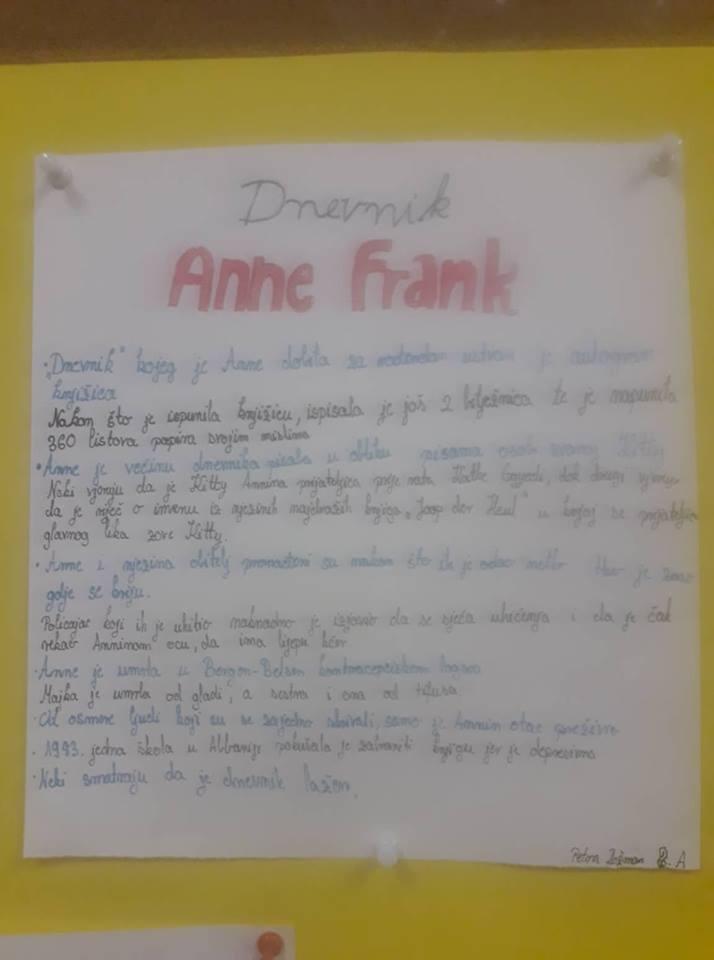 Dnevnik
Anne Frank
• „Dnevnik" kojeg je Anne dobila za je
knjižica
Nakon što je ispunila knjižicu, ispisala je još 2 bilježnica te je napunila
360 listova papira svojim mislima
• Anne je većinu dnevnika pisala u obliku pisama osobi zvanoj Kitty
Neki vjeruju da je Kitty Annina prijateljica prije rata dok drugi
da je riječ o imenu iz njezinih najdražih knjiga „Joop der Heul" u kojoj se prijateljica
glavnog lika zove Kitty.
• Anne i njezina obitelj pronađeni su nakon što ih je odao netko tko je znao
gdje se kriju.
Policajac koji ih je uhitio naknadno je izjavio da se sjeća uhićenja i da je čak
rekao Anninom ocu, da ima lijepu kćer
• Anne je umrla u Bergen-Belsen logoru
Majka je umrla od gladi, a sestra i ona od tifusa
• Od osmine ljudi koji su se zajedno skrivali, samo je Annin otac preživio
• 1983. jedna škola u pokušala je zabraniti knjigu jer je depresivna
• Neki smatraju da je dnevnik lažan.
Petra 8. A